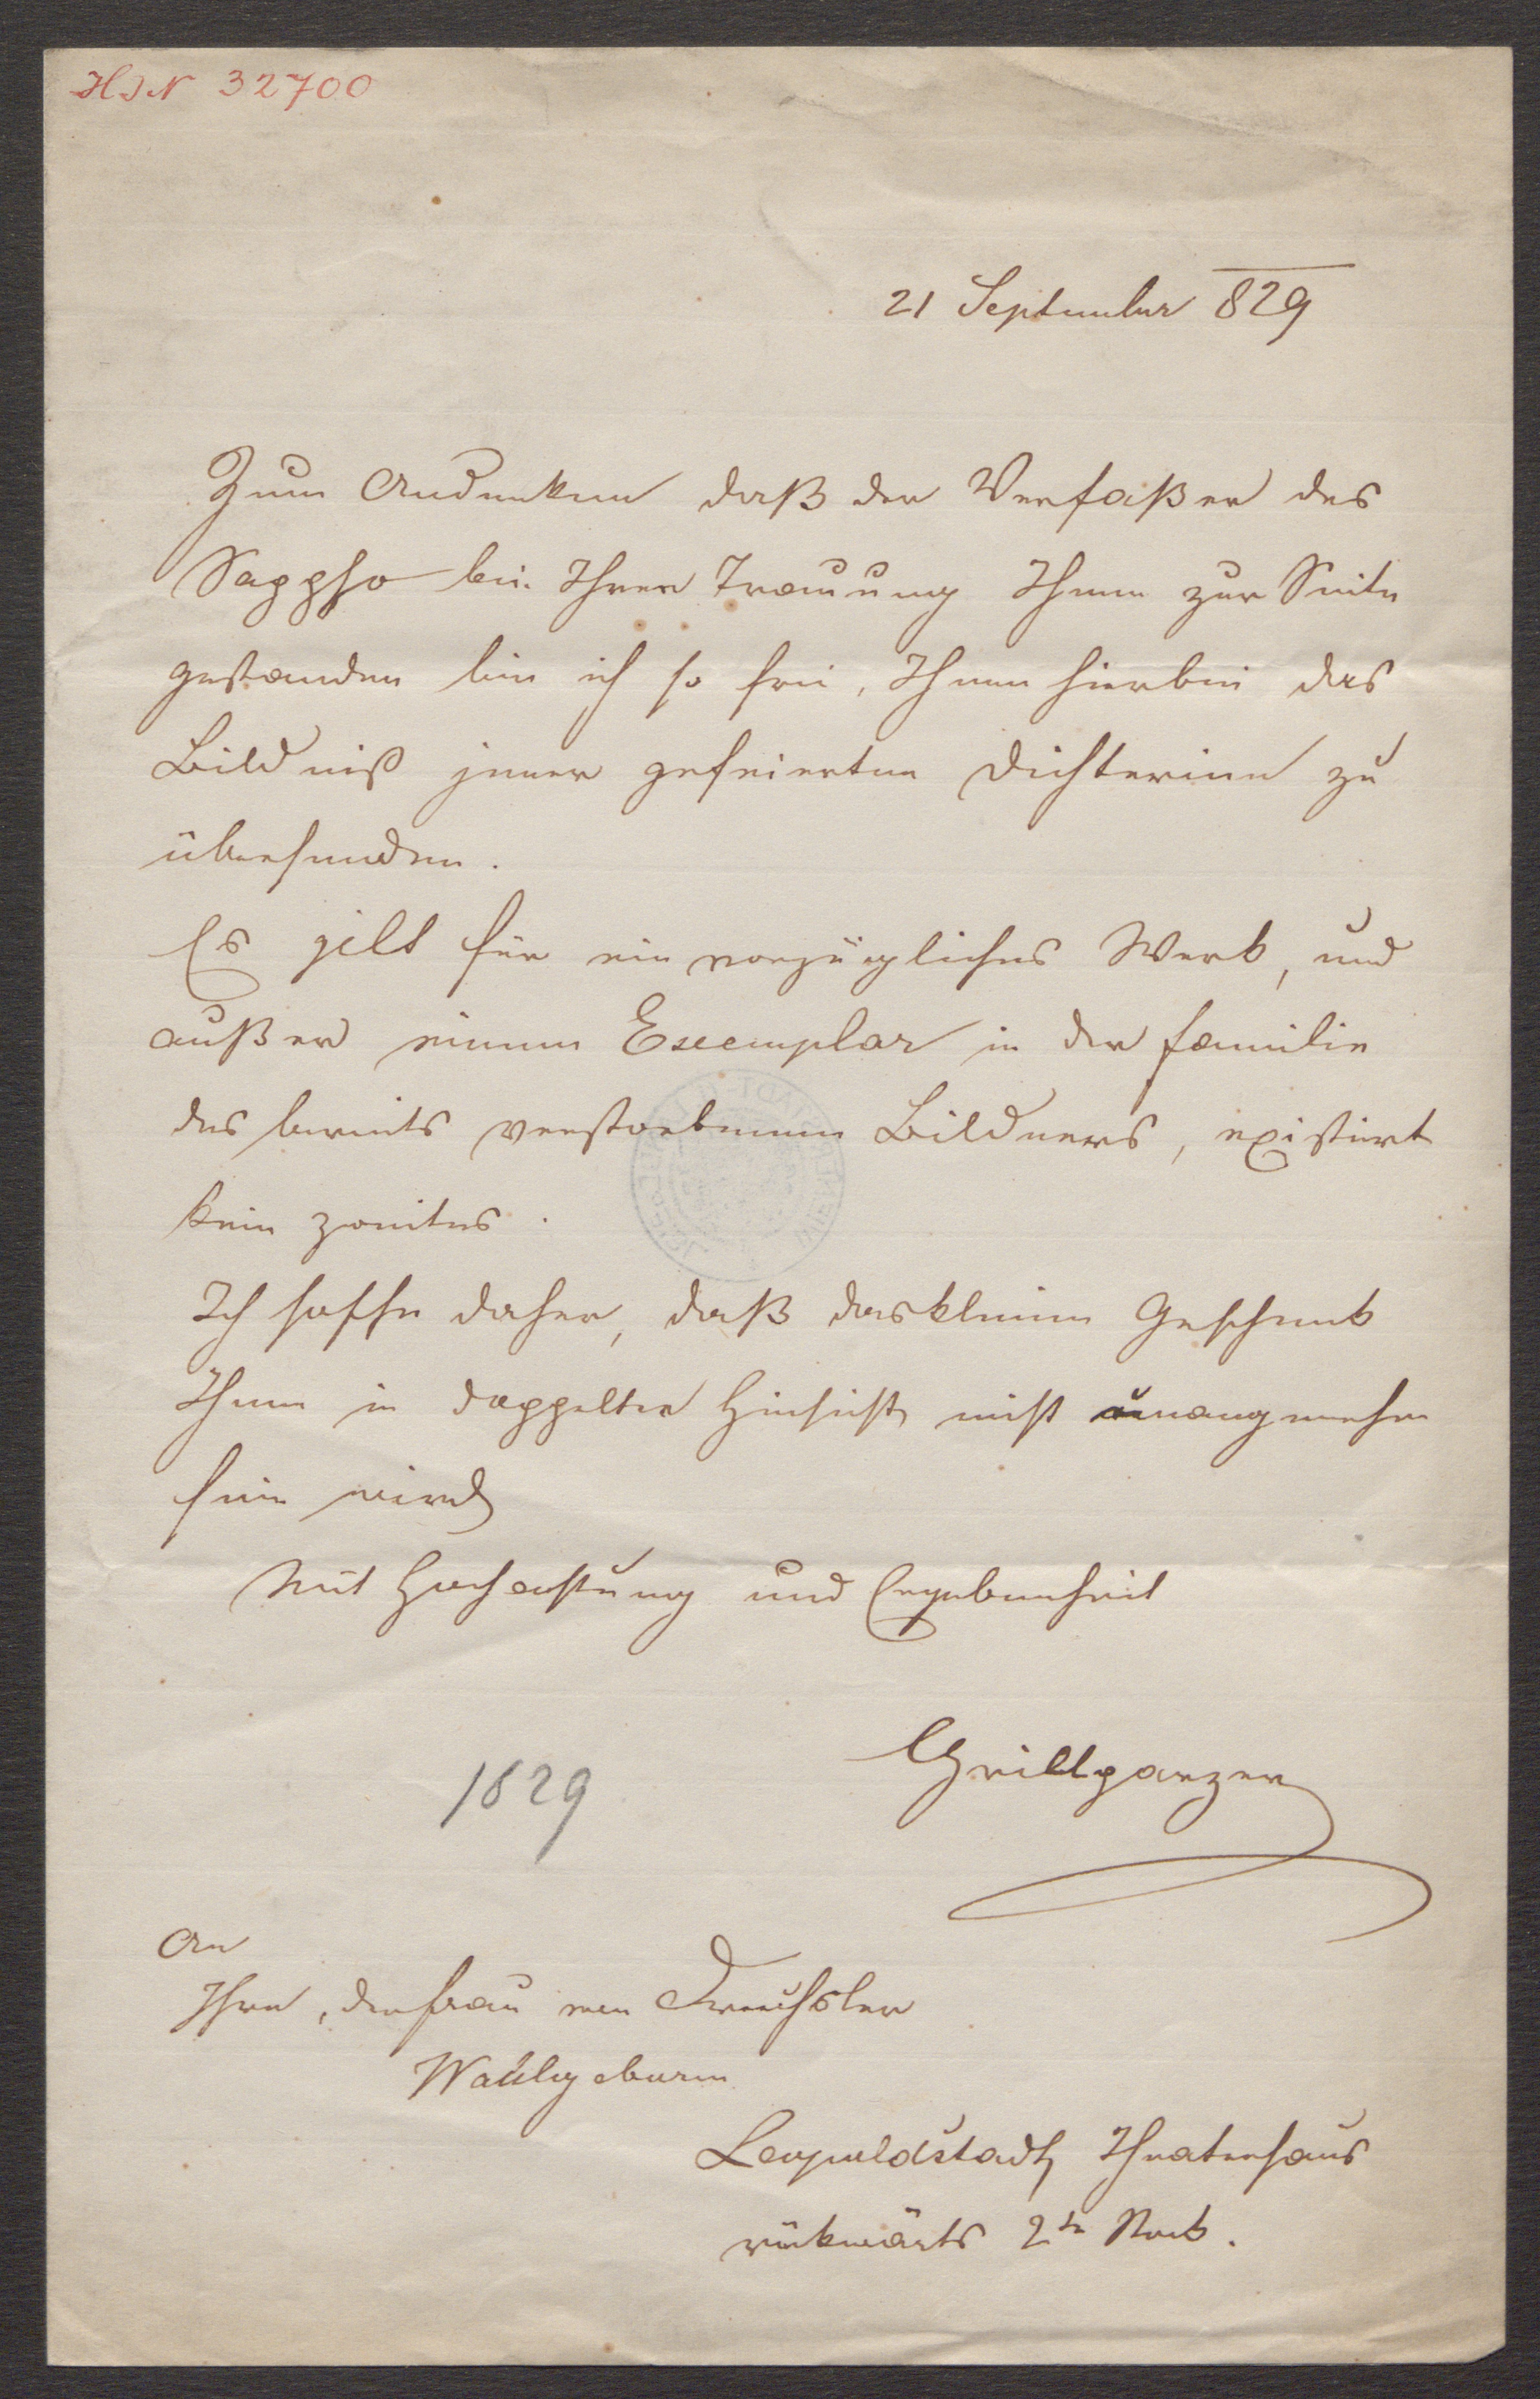 HIN 32700
21 September 829
Zum Andenken daß der Verfaßer des
Sappho bei Ihrer Trauung Ihnen zur Seite
gestanden bin ich so frei, Ihnen hierbei das
Bildniß jener gefeierten Dichterinn zu
übersenden.
Es gilt für ein vorzügliches Werk, und
außer einem Exemplar in der Familie
des bereits verstorbenen Bildners, existirt
kein zweites.
Ich hoffe daher, daß das kleine Geschenk
Ihnen in doppelter Hinsicht nicht unangenehm
sein wird
Mit Hochachtung und Ergebenheit
Grillparzer
1829
An
Ihre, der Frau von Drechsler
Wohlgeboren
Leopoldstadt Theaterhaus
rükwärts 2te Stock.